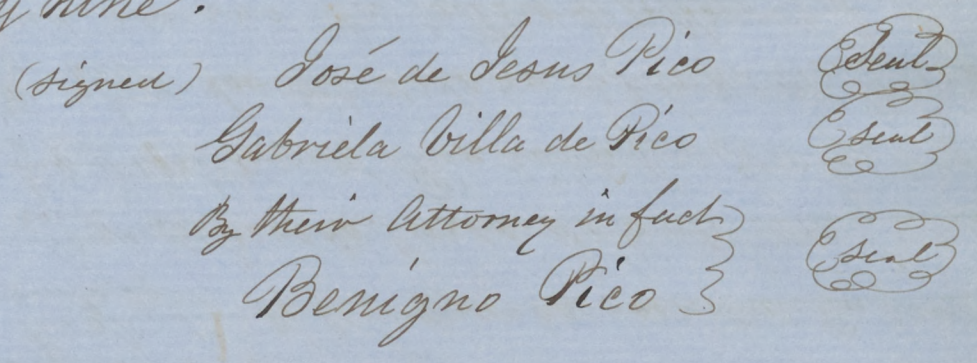 nine.
(signed) José de Jesus Pico (Seal)
Gabriela Villa de Pico (seal)
By their Attorney in fact
Benigno Pico (seal)